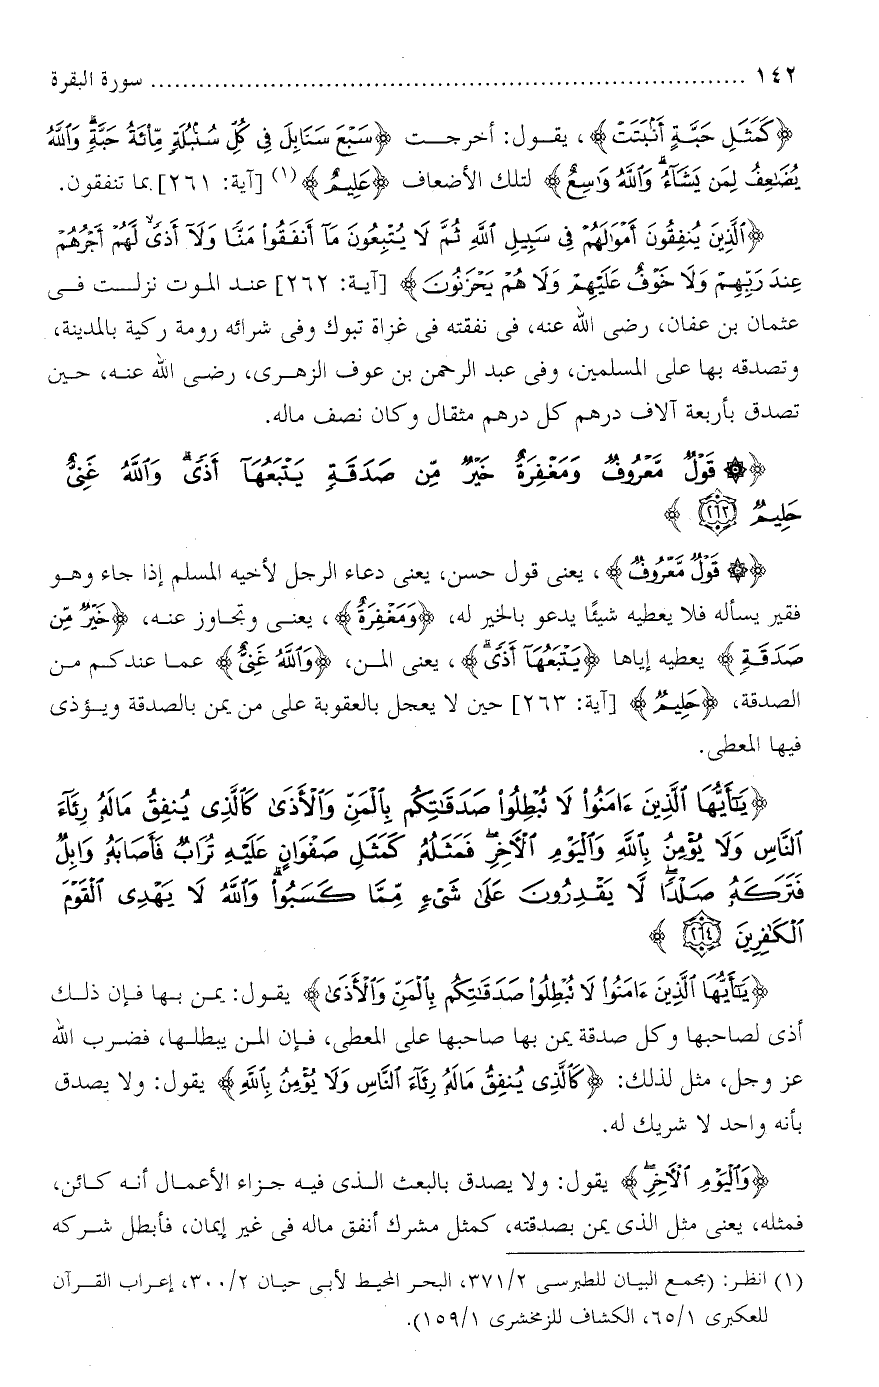 ١٤٢ ........................................................................... سورة البقرة
﴿كَمَثَلِ حَبَّةٍ أَنۢبَتَتْ﴾، يقول: أخرجت ﴿سَبْعَ سَنَابِلَ فِى كُلِّ سُنۢبُلَةٍ مِّا۟ئَةُ حَبَّةٍ ۗ وَٱللَّهُ
يُضَٰعِفُ لِمَن يَشَآءُ ۗ وَٱللَّهُ وَٰسِعٌ﴾ لتلك الأضعاف ﴿عَلِيمٌ﴾(١) [آية: ٢٦١] بما تنفقون.
﴿ٱلَّذِينَ يُنفِقُونَ أَمْوَٰلَهُمْ فِى سَبِيلِ ٱللَّهِ ثُمَّ لَا يُتْبِعُونَ مَآ أَنفَقُوا۟ مَنًّا وَلَآ أَذًى ۙ لَّهُمْ أَجْرُهُمْ
عِندَ رَبِّهِمْ وَلَا خَوْفٌ عَلَيْهِمْ وَلَا هُمْ يَحْزَنُونَ﴾ [آية: ٢٦٢] عند الموت نزلت فى
عثمان بن عفان، رضى الله عنه، فى نفقته فى غزاة تبوك وفى شرائه رومة ركية بالمدينة،
وتصدقه بها على المسلمين، وفى عبد الرحمن بن عوف الزهرى، رضى الله عنه، حين
تصدق بأربعة آلاف درهم كل درهم مثقال وكان نصف ماله.
﴿۞ قَوْلٌ مَّعْرُوفٌ وَمَغْفِرَةٌ خَيْرٌ مِّن صَدَقَةٍ يَتْبَعُهَآ أَذًى ۗ وَٱللَّهُ غَنِىٌّ
حَلِيمٌ ٢٦٣﴾
﴿۞ قَوْلٌ مَّعْرُوفٌ﴾، يعنى قول حسن، يعنى دعاء الرجل لأخيه المسلم إذا جاء وهو
فقير يسأله فلا يعطيه شيئًا يدعو بالخير له، ﴿وَمَغْفِرَةٌ﴾، يعنى وتجاوز عنه، ﴿خَيْرٌ مِّن
صَدَقَةٍ﴾ يعطيه إياها ﴿يَتْبَعُهَآ أَذًى ۗ﴾، يعنى المن، ﴿وَٱللَّهُ غَنِىٌّ﴾ عما عندكم من
الصدقة، ﴿حَلِيمٌ﴾ [آية: ٢٦٣] حين لا يعجل بالعقوبة على من يمن بالصدقة ويؤذى
فيها المعطى.
﴿يَٰٓأَيُّهَا ٱلَّذِينَ ءَامَنُوا۟ لَا تُبْطِلُوا۟ صَدَقَٰتِكُم بِٱلْمَنِّ وَٱلْأَذَىٰ كَٱلَّذِى يُنفِقُ مَالَهُۥ رِئَآءَ
ٱلنَّاسِ وَلَا يُؤْمِنُ بِٱللَّهِ وَٱلْيَوْمِ ٱلْءَاخِرِ ۖ فَمَثَلُهُۥ كَمَثَلِ صَفْوَانٍ عَلَيْهِ تُرَابٌ فَأَصَابَهُۥ وَابِلٌ
فَتَرَكَهُۥ صَلْدًا ۖ لَّا يَقْدِرُونَ عَلَىٰ شَىْءٍ مِّمَّا كَسَبُوا۟ ۗ وَٱللَّهُ لَا يَهْدِى ٱلْقَوْمَ
ٱلْكَٰفِرِينَ ٢٦٤﴾
﴿يَٰٓأَيُّهَا ٱلَّذِينَ ءَامَنُوا۟ لَا تُبْطِلُوا۟ صَدَقَٰتِكُم بِٱلْمَنِّ وَٱلْأَذَىٰ﴾ يقول: يمن بها فإن ذلك
أذى لصاحبها وكل صدقة يمن بها صاحبها على المعطى، فإن المن يبطلها، فضرب الله
عز وجل، مثل لذلك: ﴿كَٱلَّذِى يُنفِقُ مَالَهُۥ رِئَآءَ ٱلنَّاسِ وَلَا يُؤْمِنُ بِٱللَّهِ﴾ يقول: ولا يصدق
بأنه واحد لا شريك له.
﴿وَٱلْيَوْمِ ٱلْءَاخِرِ ۖ﴾ يقول: ولا يصدق بالبعث الذى فيه جزاء الأعمال أنه كائن،
فمثله، يعنى مثل الذى يمن بصدقته، كمثل مشرك أنفق ماله فى غير إيمان، فأبطل شركه
(١) انظر: (مجمع البيان للطبرسى ٣٧١/٢، البحر المحيط لأبى حيان ٣٠٠/٢، إعراب القرآن
للعكبرى ٦٥/١، الكشاف للزمخشرى ١٥٩/١).